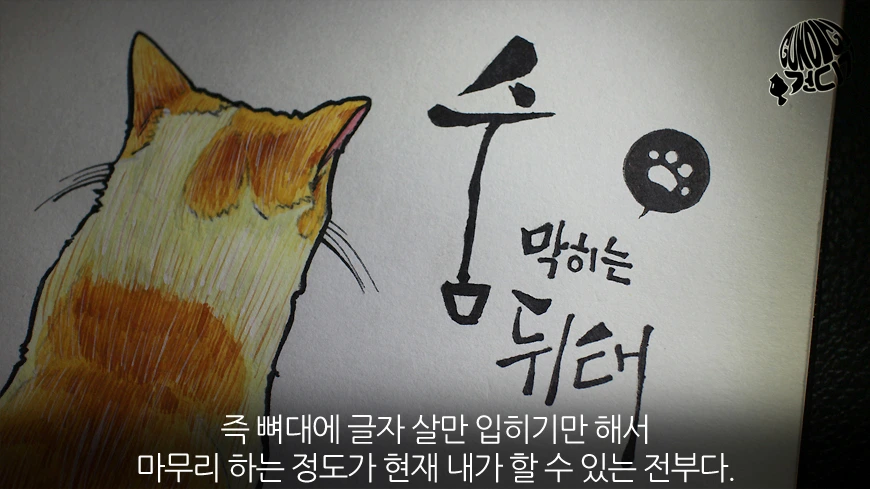 GUKDING
숨
막히는
뒤태
즉 뼈대에 글자 살만 입히기만 해서
마무리 하는 정도가 현재 내가 할 수 있는 전부다.